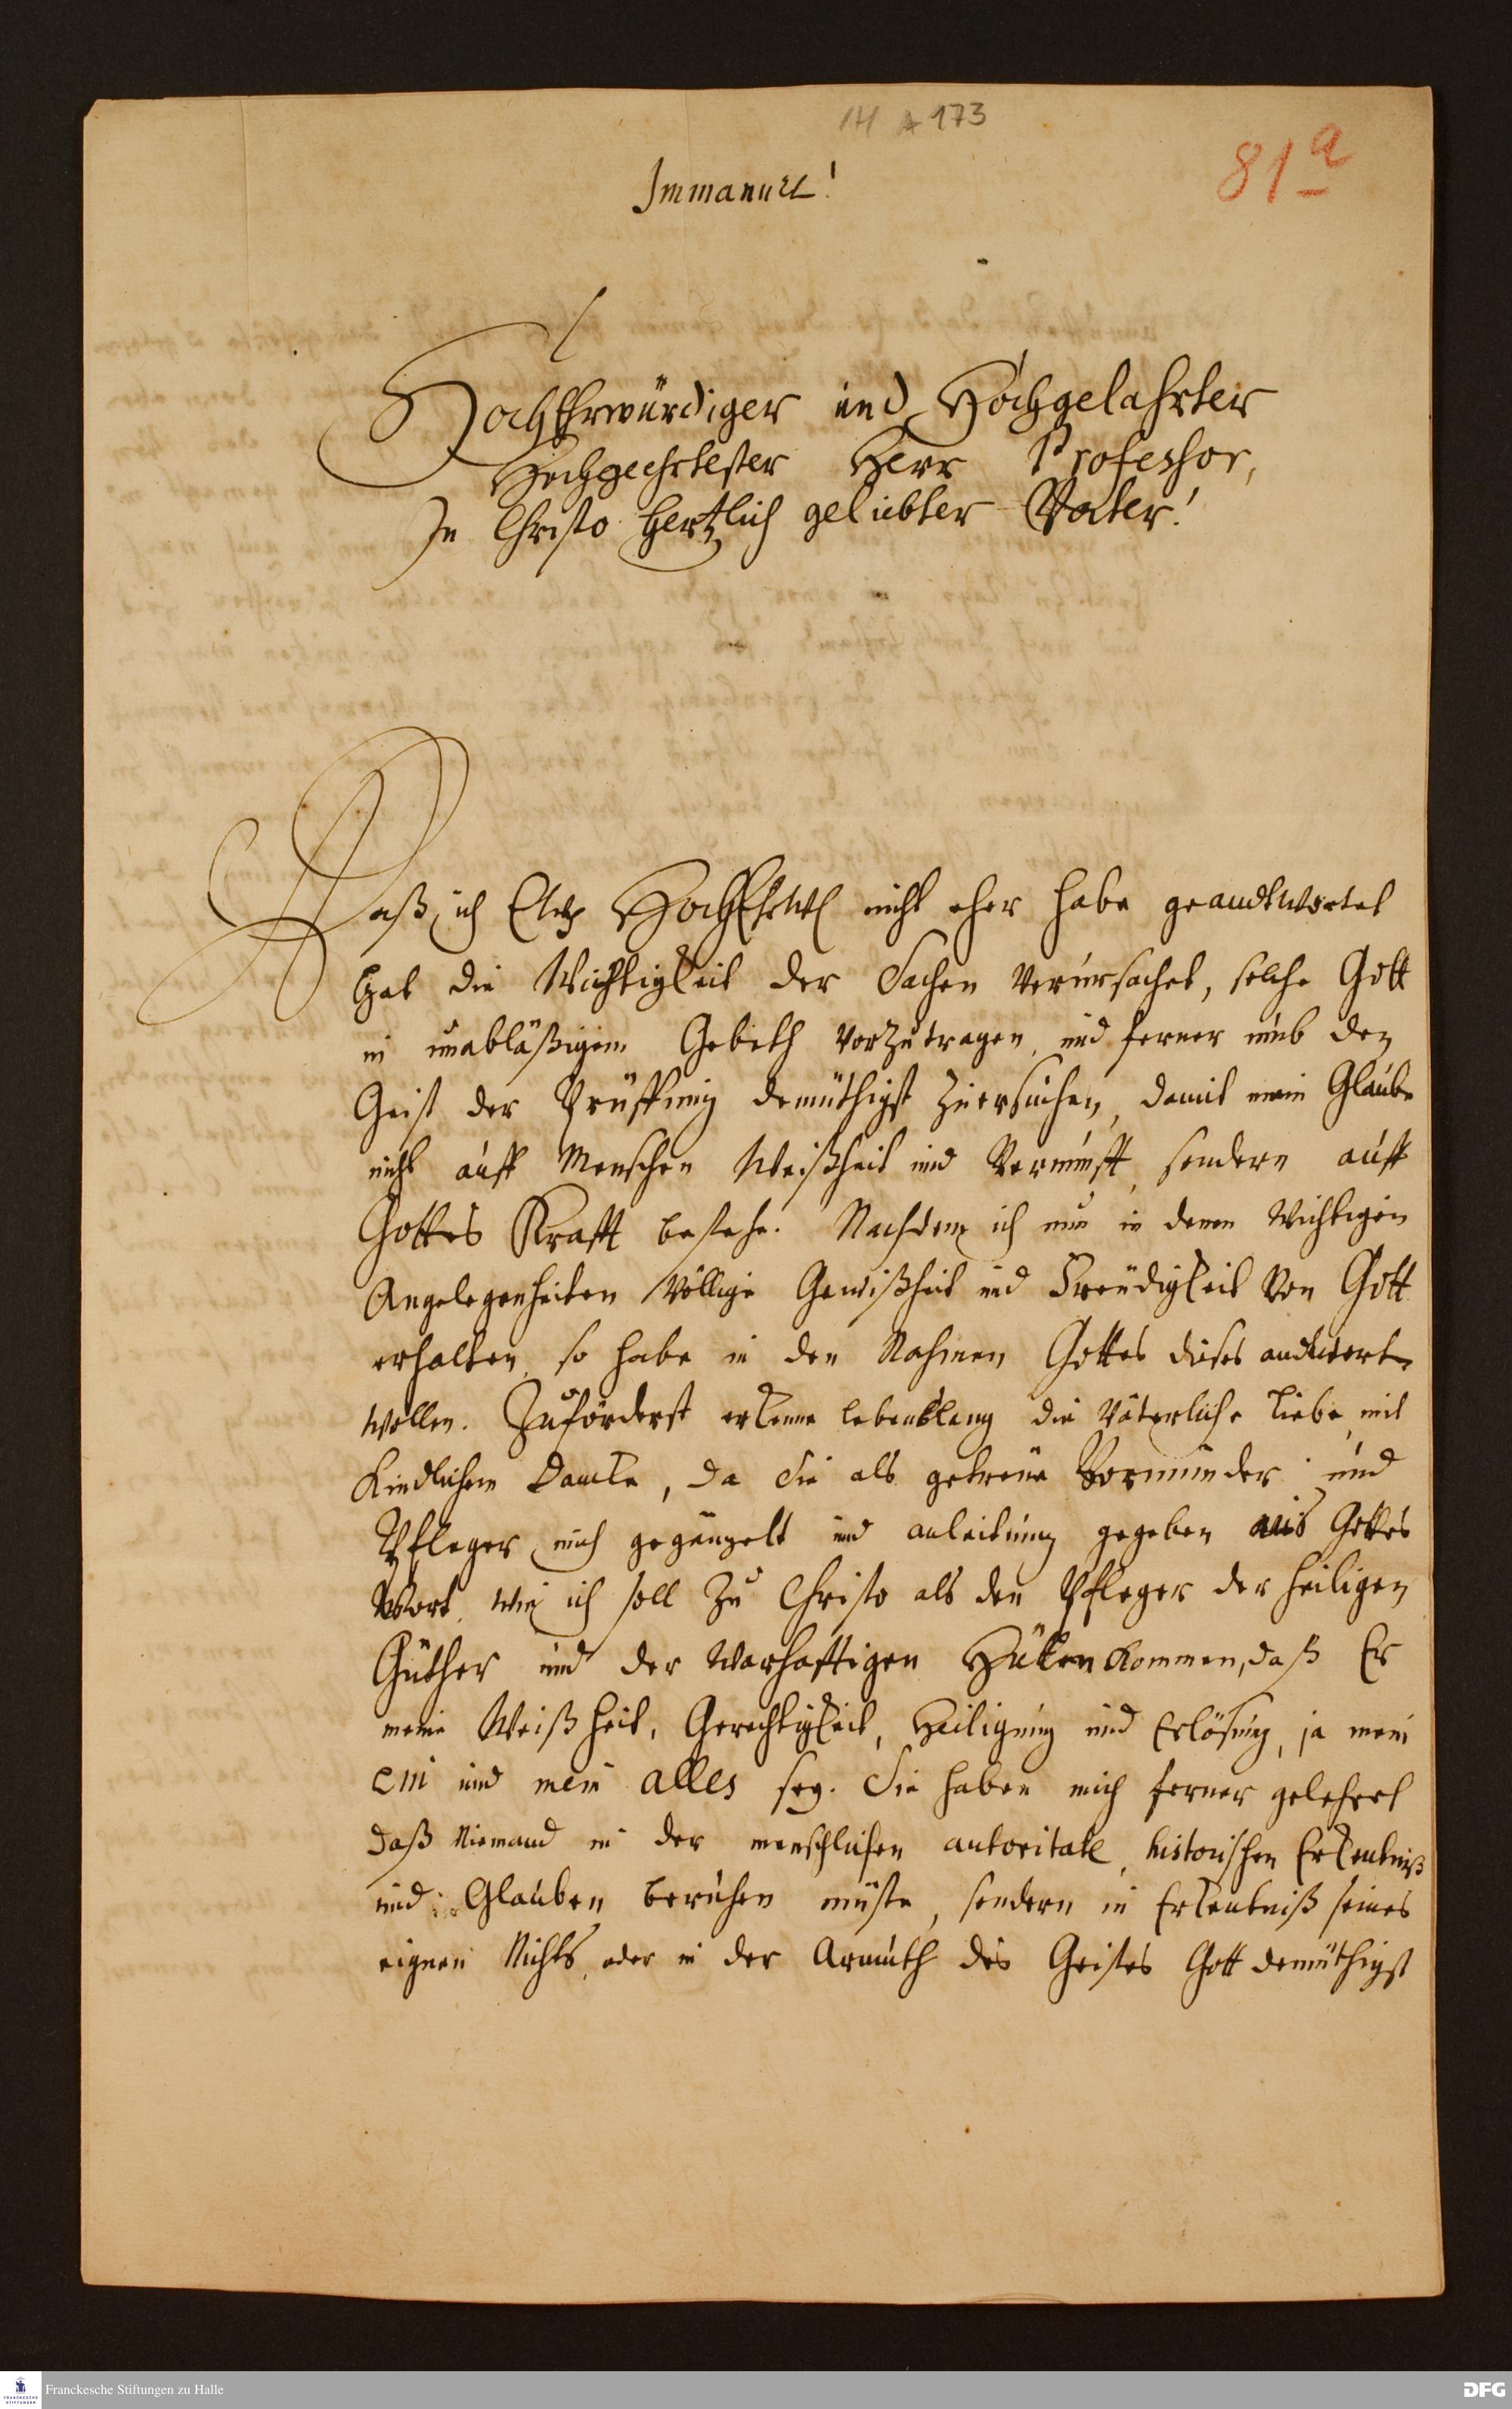 III A 173
81a
Immanuel!
HochEhrwürdiger und Hochgelahrter
Hochgeehrtester Herr Professor,
In Christo hertzlich geliebter Vater!
Daß ich Ew. HochEhrW. nicht eher habe geandtwortet
hat die Wichtigkeit der Sachen verursachet, solche Gott
in unabläßigem Gebeth vorzutragen, und ferner umb den
Geist der Prüffung demüthigst zu ersuchen, damit mein Glaube
nicht auff Menschen Weißheit und Vernunfft, sondern auff
Gottes Krafft bestehe. Nachdem ich nun in denen wichtigen
Angelegenheiten völlige Gewißheit und Freudigkeit von Gott
erhalten, so habe in den Nahmen Gottes dieses andtworten
wollen. Zuförderst erkenne lebenslang die Väterliche Liebe mit
kindlichem Dancke, da Sie als getreue Vormünder und
Pfleger mich gegängelt und anleitung gegeben aus Gottes
Wort, wie ich soll zu Christo als den Pfleger der heiligen
Güther und der warhafftigen Hütten kommen, daß Er
meine Weißheit, Gerechtigkeit, Heiligung und Erlösung, ja mein
ein und mein alles sey. Sie haben mich ferner gelehret
daß Niemand in der menschlichen autoritate, historischen Erkentniß
und Glauben beruhen müste, sondern in Erkentniß seines
eignen Nichts, oder in der Armuth des Geistes Gott demüthigst
Franckesche Stiftungen zu Halle
FRANCKESCHE
STIFTUNGEN
DFG